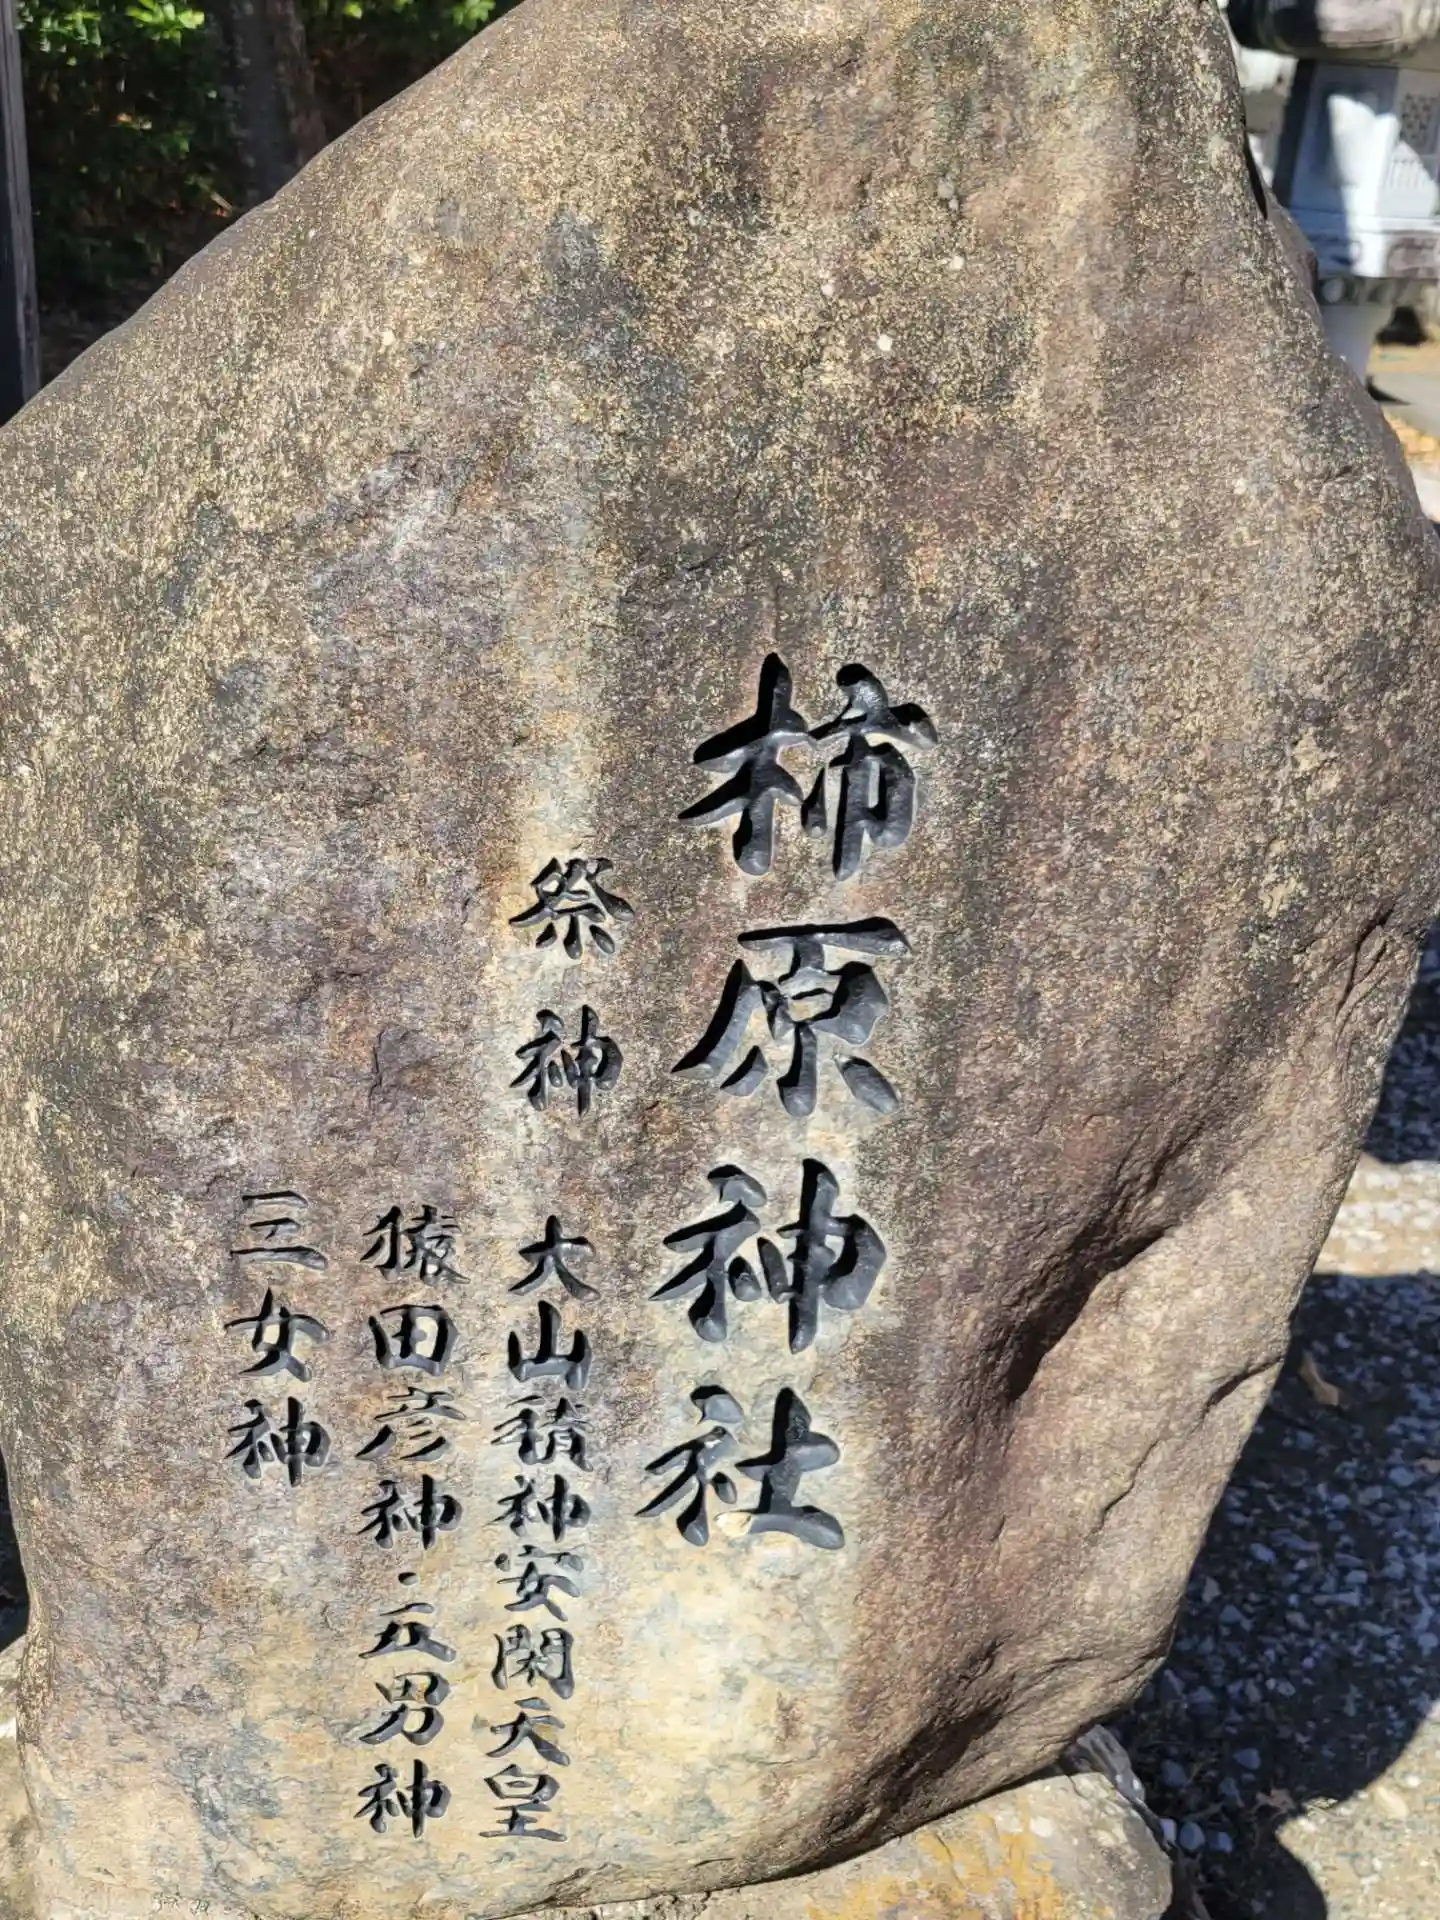 柿原神社
祭神
大山積神安閑天皇
猿田彦神・五男神
三女神